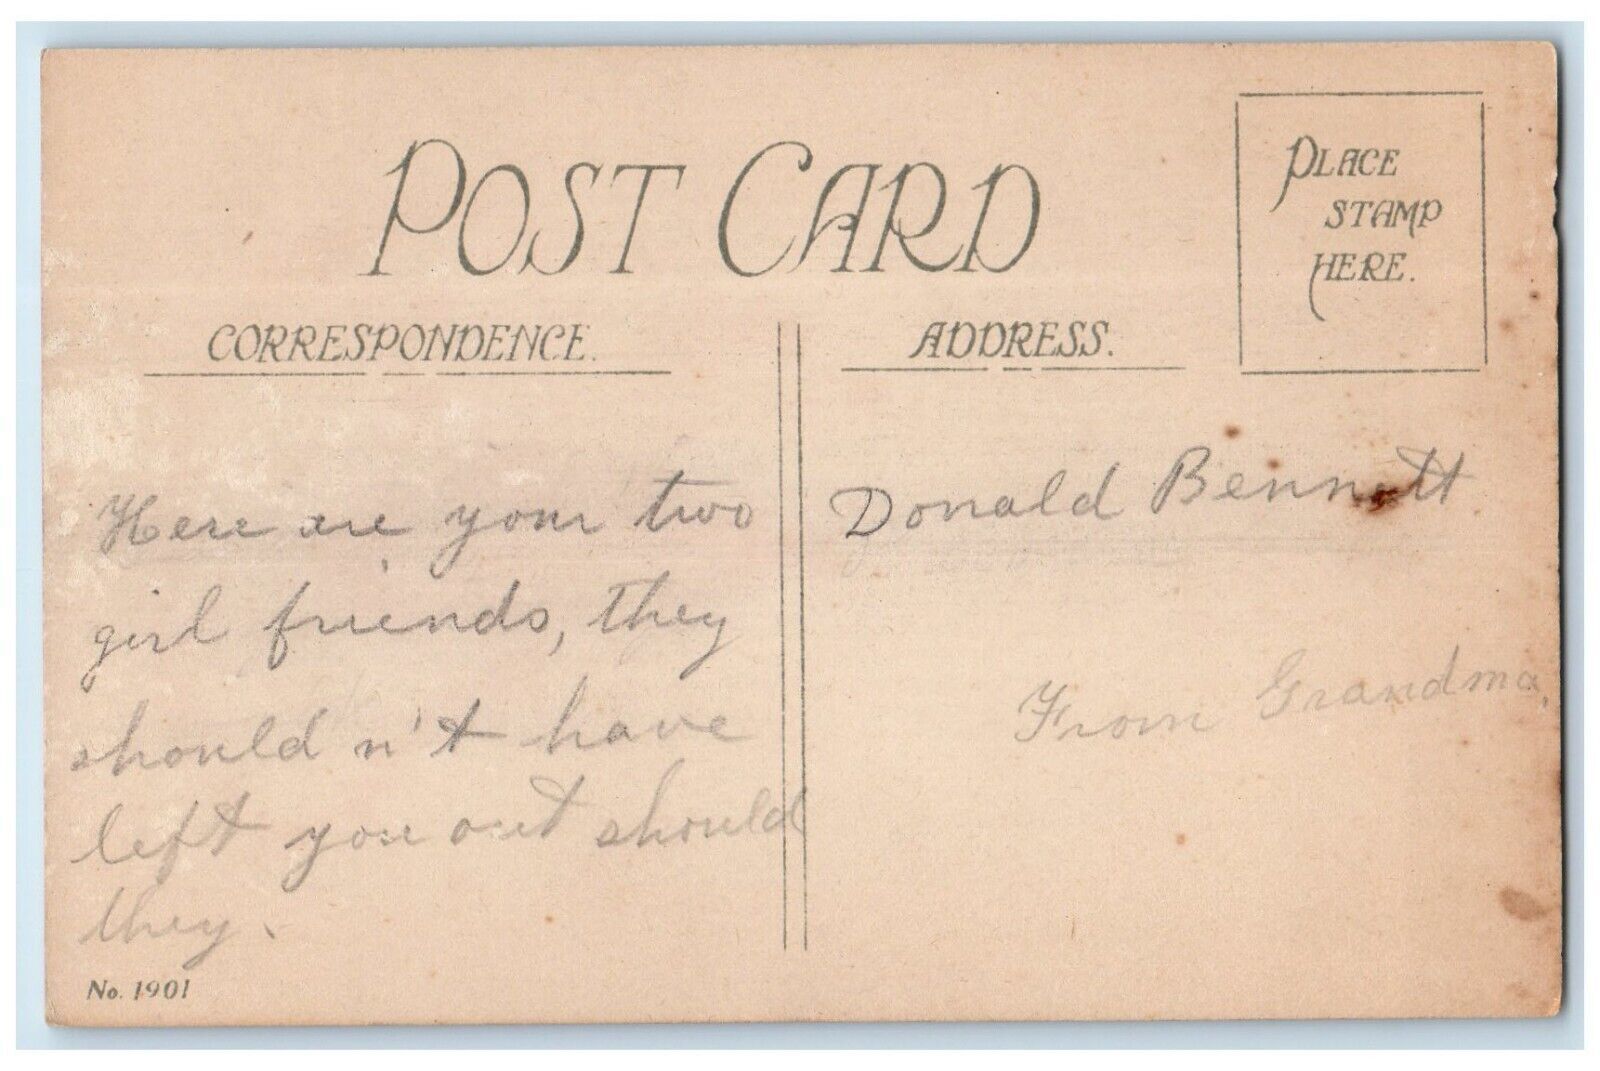 POST CARD
PLACE
STAMP
HERE.
CORRESPONDENCE.
ADDRESS.
Here are your two
girl friends, they
should n't have
left you out should
they.
Donald Bennett
From Grandma.
No. 1901